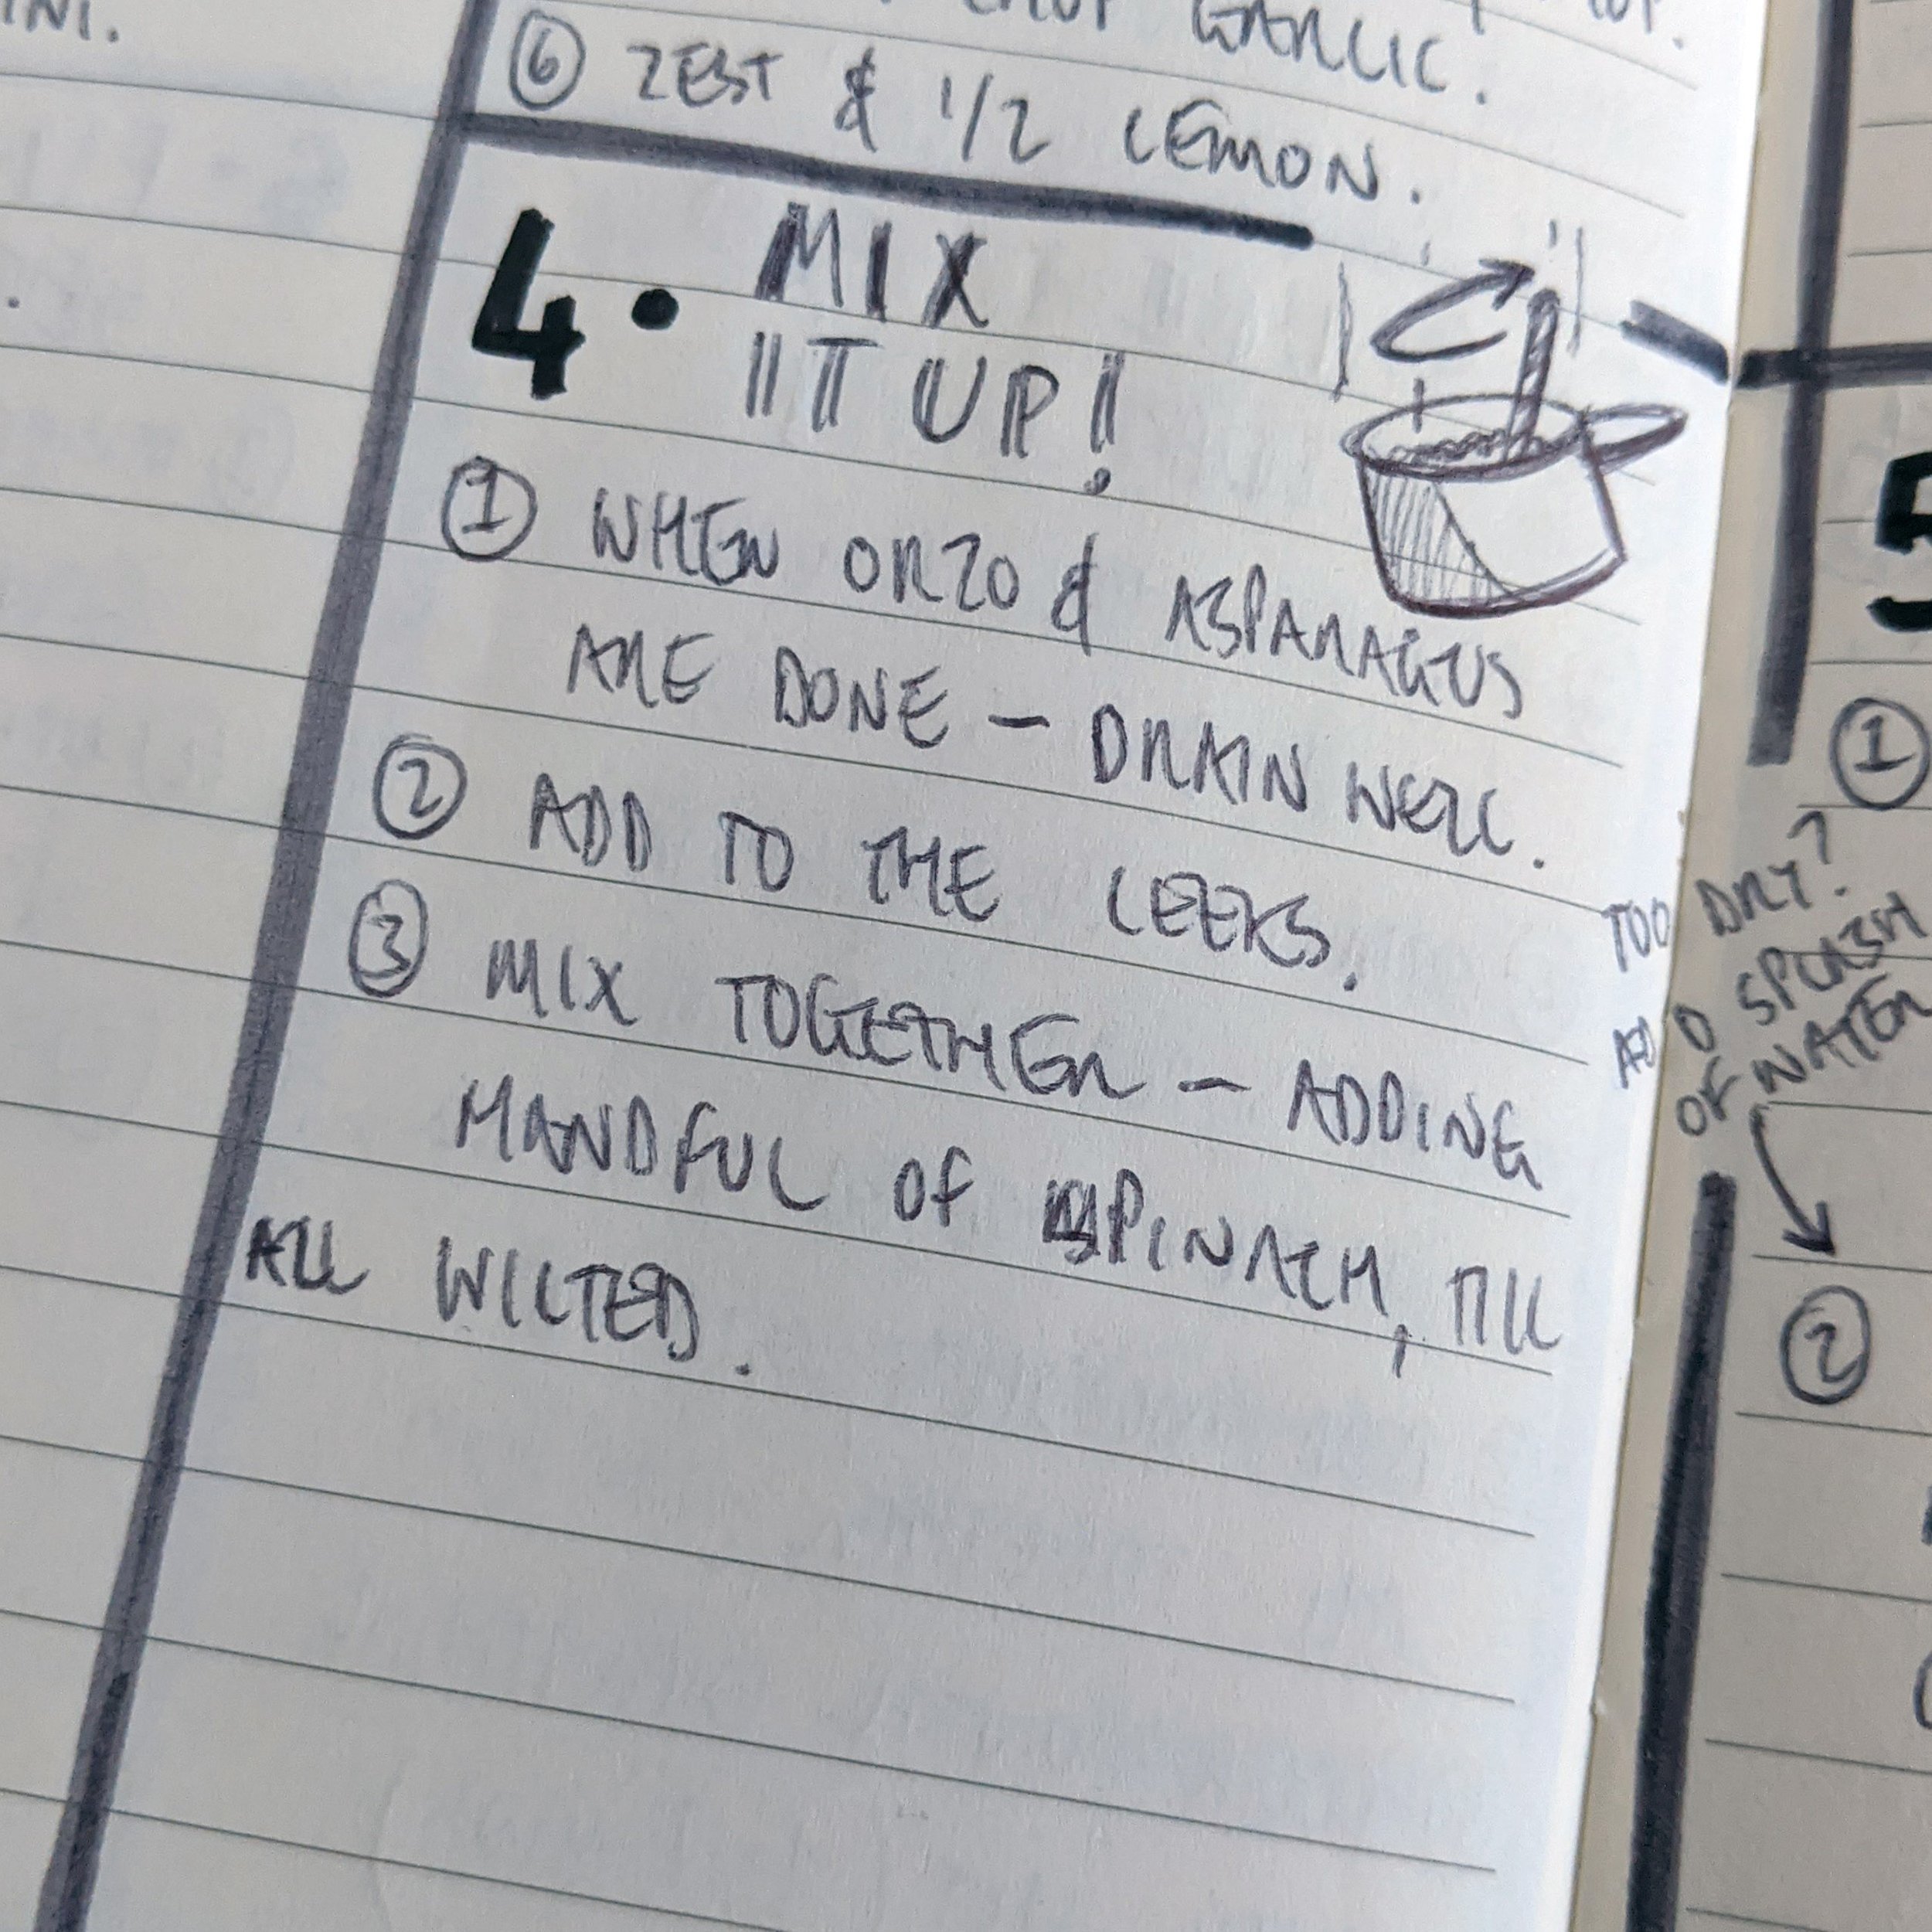 GARLIC.
⑥ ZEST & 1/2 LEMON.
4. MIX
IT UP!
① WHEN ORZO & ASPARAGUS
ARE DONE – DRAIN WELL.
② ADD TO THE LEEKS.
③ MIX TOGETHER – ADDING
HANDFUL OF SPINACH, TILL
ALL WILTED.
5
①
TOO DRY?
ADD SPLASH
OF WATER
②